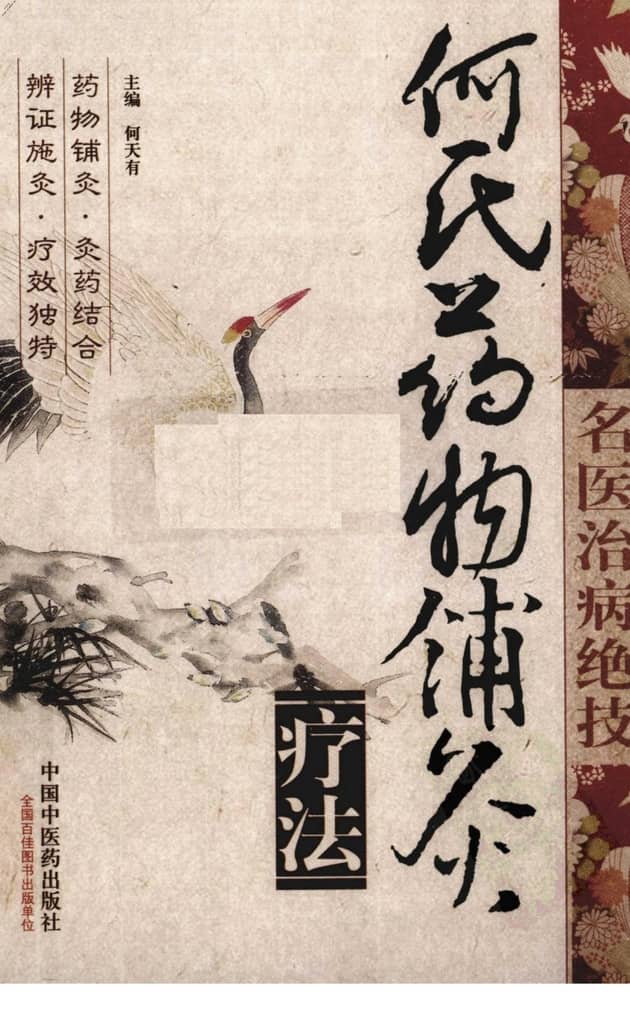 名医治病绝技
何氏药物铺灸
疗法
主编 何天有
药物铺灸·灸药结合
辨证施灸·疗效独特
中国中医药出版社
全国百佳图书出版单位